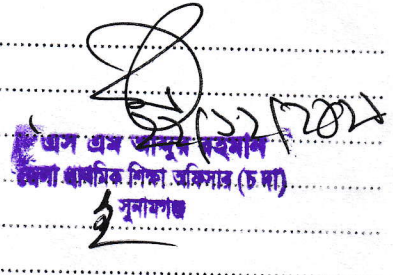 এস এম আব্দুর রহমান
জেলা প্রাথমিক শিক্ষা অফিসার (চ দা)
সুনামগঞ্জ